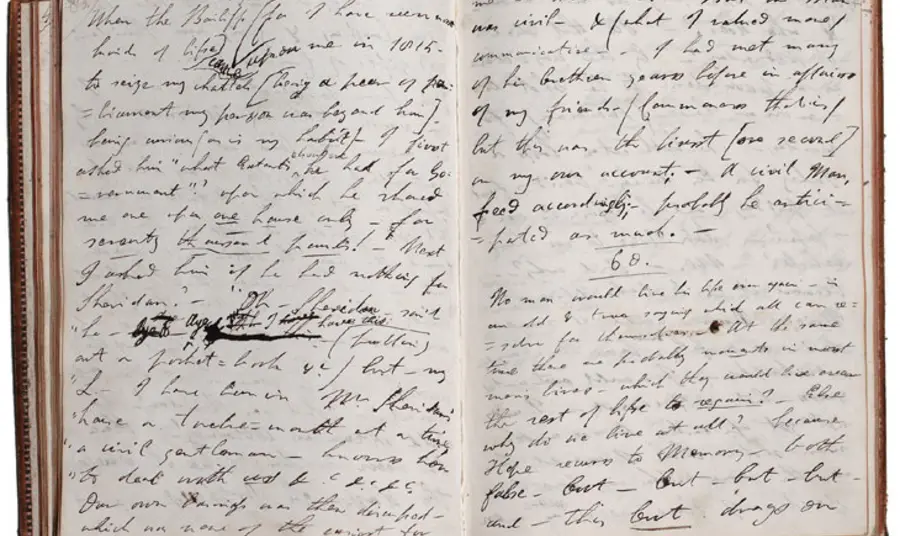 When the Bailiff (for I have seen most
kinds of life) came upon me in 1815 -
to seize my chattels (being a peer of par=
=liament my person was beyond him)
being curious (as is my habit) I first
asked him "what Extents elsewhere he had for Go=
=vernment"? upon which he showed
me one upon one house only - for
seventy thousand pounds! - Next
I asked him if he had nothing for
Sheridan? - "Oh - Sheridan said
"he - aye I have this - (pulling
out a pocket=book &c) but - my
"L. I have been in Mr Sheridan's
house a twelve=month at a time
"a civil gentleman - knows how
"to deal with us & c &c &c
Our own business was then discussed -
which was none of the easiest for
was civil - & (what I valued more)
communicative - I had met many
of his brethren years before in affairs
of my friends (commoners that is)
but this was the first (or second)
on my own account. - A civil Man,
feed accordingly - probably he antici=
=pated as much. -
68.
No man would live his life over again - is
an old & true saying which all can re=
=solve for themselves. - At the same
time there are probably moments in most
mens lives - which they would live over
the rest of life to regain? - Else
why do we live at all? because
Hope recurs to Memory - both
false - but - but - but - but -
and - this but drags on